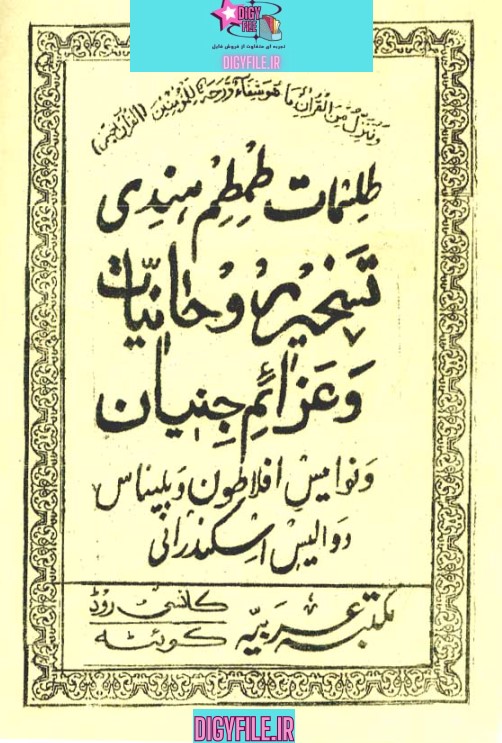 DIGY FILE
تجربه ای متفاوت از فروش فایل
DIGYFILE.IR
وَنُنَزِّلُ مِنَ الْقُرْآنِ مَا هُوَ شِفَاءٌ وَّرَحْمَةٌ لِّلْمُؤْمِنِينَ (القرآن)
طلسمات طمطم هندی
تسخیر روحانیّات
وَعَزائمِ جِنیان
ونوامیس افلاطون وبلیناس
دوالیس اسکندرانی
مکتبہ عربیّہ کانسی روڈ کوئٹہ
DIGYFILE.IR